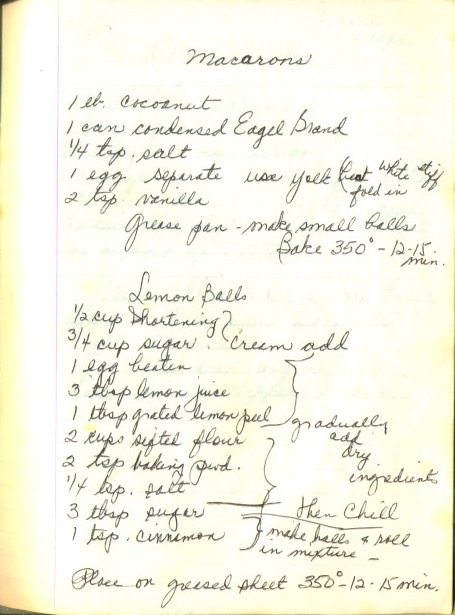 Macarons
1 lb. cocoanut
1 can condensed Eagel Brand
1/4 tsp. salt
1 egg separate use yolk (beat white stiff
fold in
2 tsp vanilla
Grease pan - make small balls
Bake 350° - 12-15
min.
Lemon Balls
1/2 cup Shortening }
3/4 cup sugar. } cream add
1 egg beaten
3 tbsp lemon juice
1 tbsp grated lemon peel
gradually
2 cups sifted flour
add
dry
2 tsp baking pwd.
ingredients
1/4 tsp. salt
3 tbsp sugar
then Chill
1 tsp. cinnamon } make balls & roll
in mixture -
Place on greased sheet 350° - 12 - 15 min.